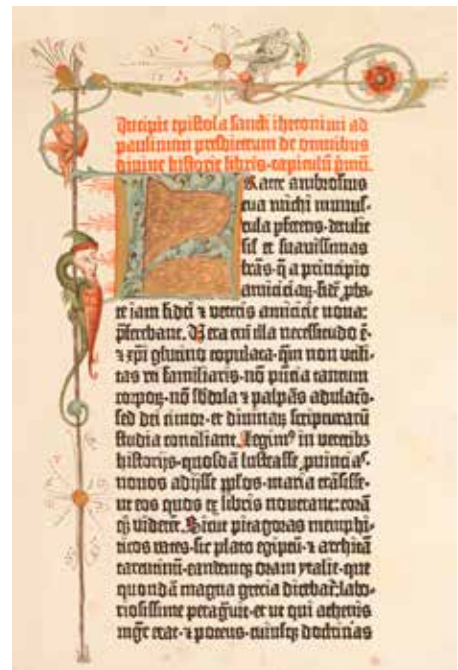 Incipit epistola sancti iheronimi ad
paulinum presbiterum de omnibus
divine historie libris·capitulū p̄mū.
Frater ambrosius
tua michi munus-
cula ꝑferens·detulit
sił et suavissimas
lr̄as·q̄ a principio
amiciciaꝝ·fidē ꝓba-
te iam fidei ⁊ veteris amicicie nova:
p̄ferebant. Vera em̄ illa necessitudo ē·
⁊ xp̄i glutino copulata·qm̄ non utili-
tas rei familiaris·nō pn̄tia tantum
corpoꝝ·nō sb̄dola ⁊ palpās adulacō·
sed dei timor·et divinaꝝ scripturarū
studia conciliant. Legimꝰ in veteribꝫ
historijs·quosdā lustrasse ꝓvincias·
novos adijsse ppl̄os·maria trāsisse·
ut eos quos ex libris noverant: corā
qꝫ viderēt. Sicut pitagoras memphi-
ticos vates·sic plato egiptū·⁊ architā
tarentinū·eandemqꝫ oram ytalie·que
quondā magna grecia dicebat᷑: labo-
riosissime peragͣvit·et ut qui athenis
mgr̄ erat·⁊ potens·cuiusqꝫ doctrinas